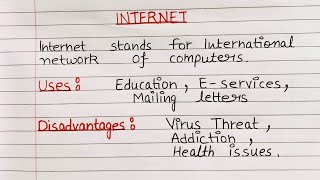 INTERNET
Internet stands for International
network of computers.
Uses: Education, E-services,
Mailing letters
Disadvantages: Virus Threat,
Addiction,
Health issues.